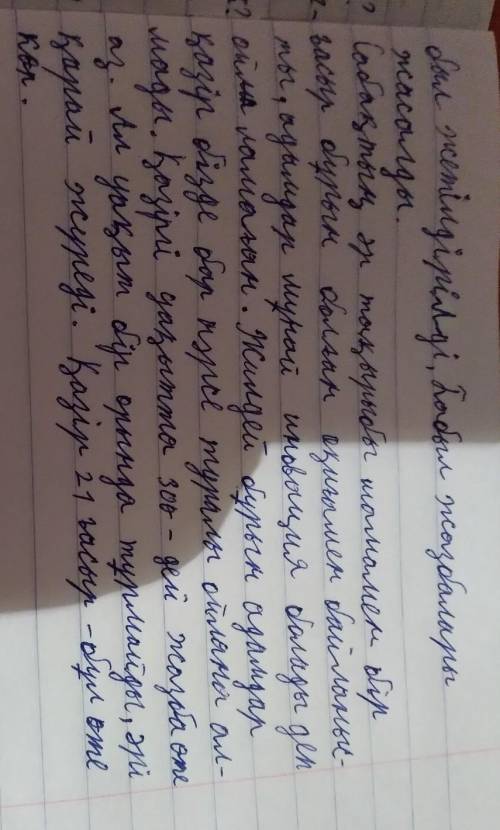 был жетілдірілді, Бабыл жазбалары
жасалды.
Сабақтың әр тақырыбы шамамен бір
ғасыр бұрын болған оқиғамен байланыс-
ты, адамдар мұндай иновация болады деп
ойлаламаған. Жүздей бұрын адамдар
қазір бізде бар нәрсе туралы ойлана ал-
мады. Қазіргі уақытта 300-дей жазба өте
аз. Ал уақыт бір орында тұрмайды, әрі
қарай жүреді. Қазір 21 ғасыр - бұл өте
көп.